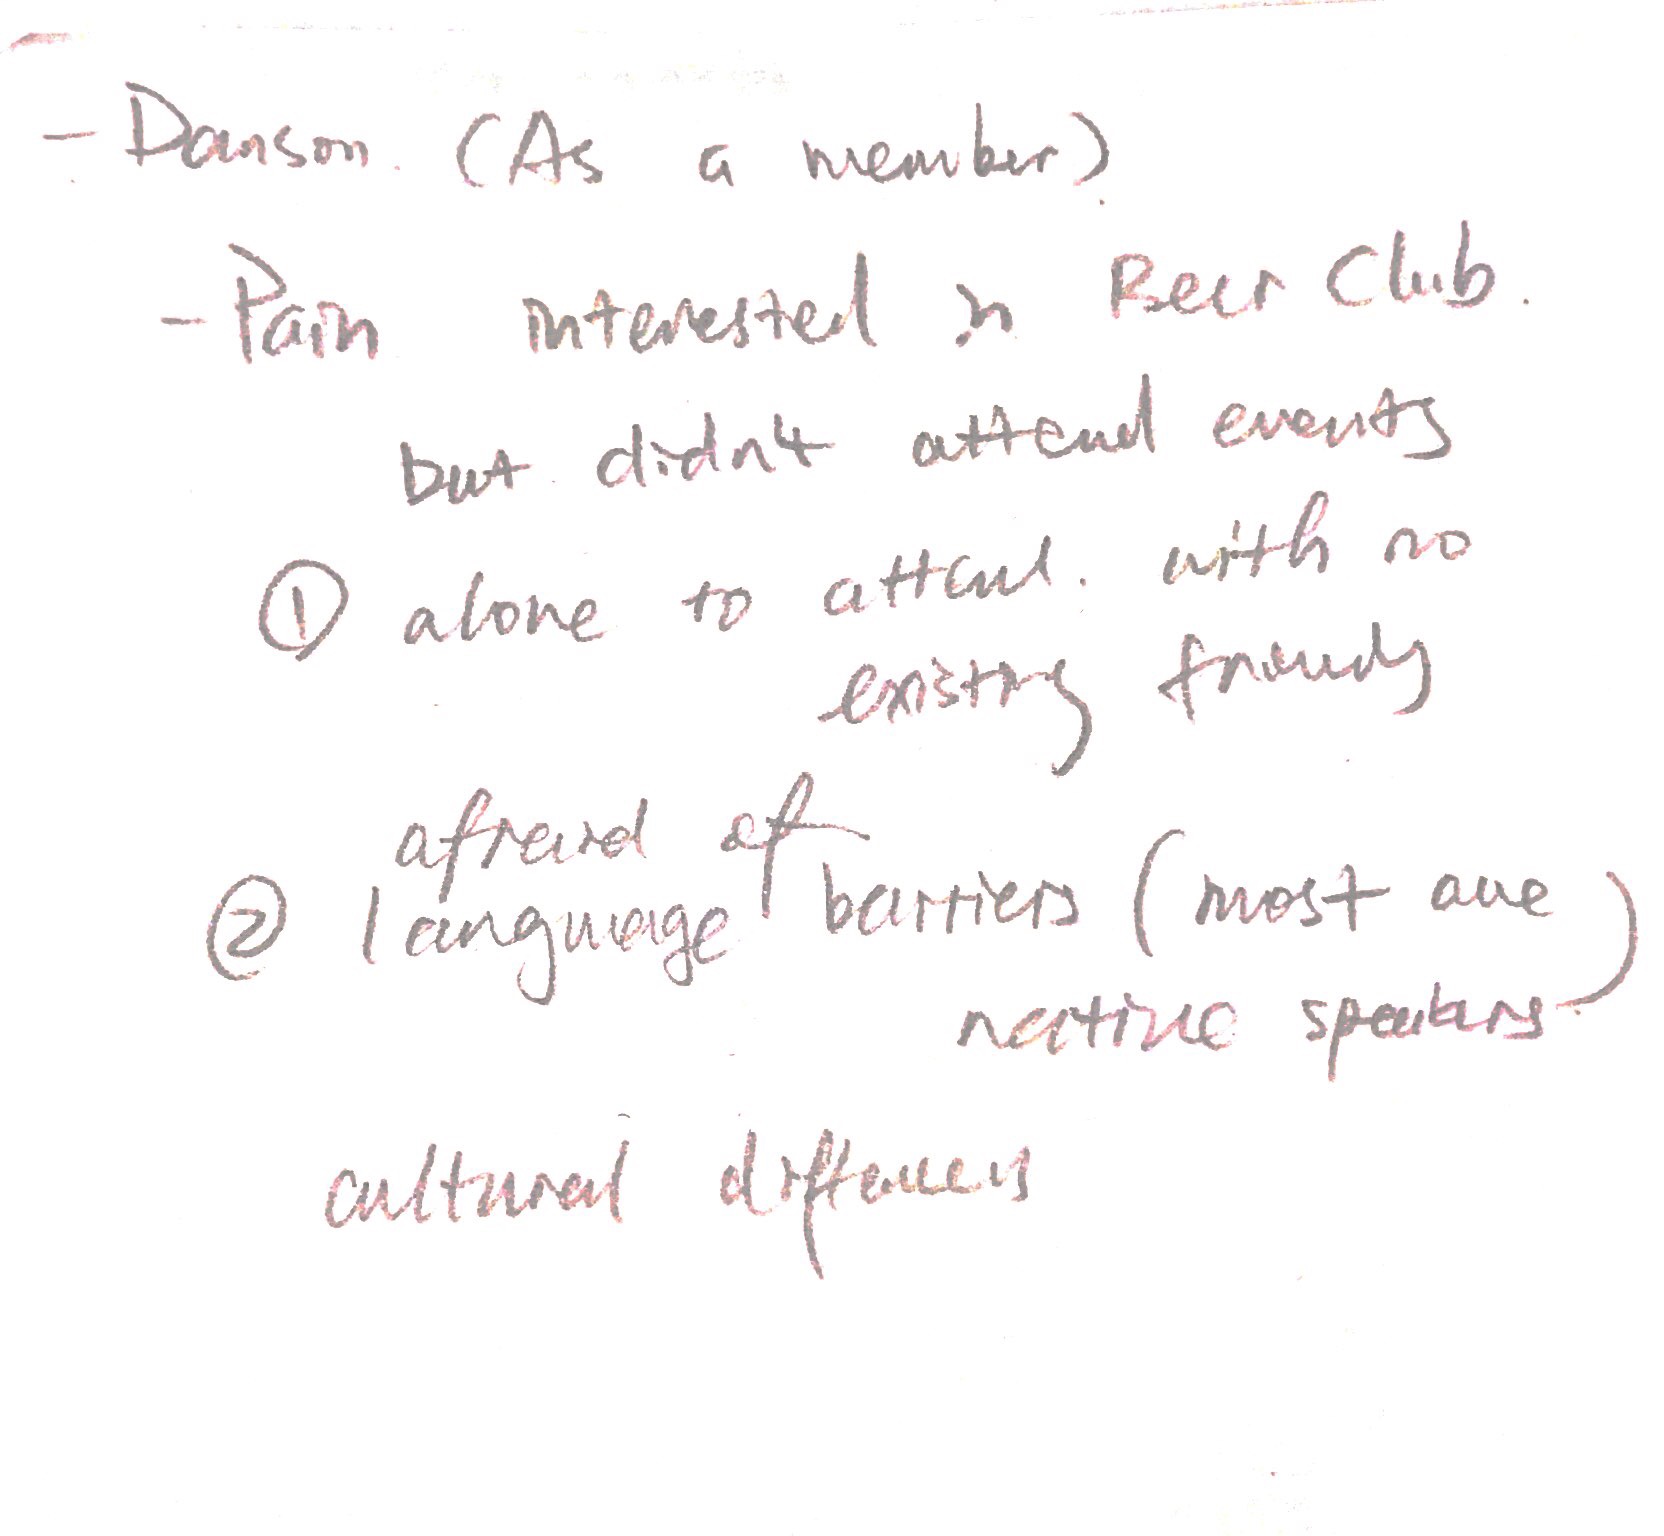 - Danson. (As a member)
- Pain interested in Beer Club.
but didn't attend events
① alone to attend. with no
existing friends
afraid of
② language barriers (most are
native speakers)
cultural differences